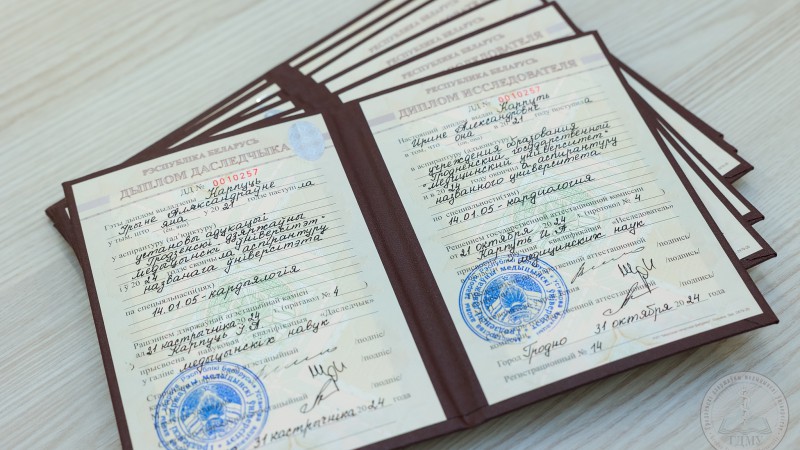 РЭСПУБЛІКА БЕЛАРУСЬ
ДЫПЛОМ ДАСЛЕДЧЫКА
ДД № 0010257
Гэты дыплом выдадзены Карпуць
Ірыне Аляксандраўне
у тым, што яна у 20 21 годзе паступіла
у аспірантуру (ад'юнктуру)
установы адукацыі
"Гродзенскі дзяржаўны
медыцынскі ўніверсітэт"
і ў 20 24 годзе скончыла аспірантуру
названага універсітэта
па спецыяльнасці(ях)
14.01.05 - кардыялогія
Рашэннем дзяржаўнай атэстацыйнай камісіі
ад 21 кастрычніка 20 24 (пратакол № 4)
Карпуць І.А.
прысвоена навуковая кваліфікацыя «Даследчык»
у галіне медыцынскіх навук
/подпіс/
/подпіс/
31 кастрычніка 20 24
РЕСПУБЛИКА БЕЛАРУСЬ
ДИПЛОМ ИССЛЕДОВАТЕЛЯ
ДД № 0010257
Настоящий диплом выдан Карпуть
Ирине Александровне
в том, что она в 20 21 году поступила
в аспирантуру (адъюнктуру)
учреждения образования
"Гродненский государственный
медицинский университет"
и в 20 24 году окончила аспирантуру
названного университета
по специальности(ям)
14.01.05 - кардиология
Решением государственной аттестационной комиссии
от 21 октября 20 24 (протокол № 4)
Карпуть И.А.
присвоена научная квалификация «Исследователь»
медицинских наук
/подпись/
государственной аттестационной
/подпись/
31 октября 20 24
Город Гродно
Регистрационный № 14
РЕСПУБЛИКА БЕЛАРУСЬ
РЕСПУБЛИКА БЕЛАРУСЬ
ГДМУ